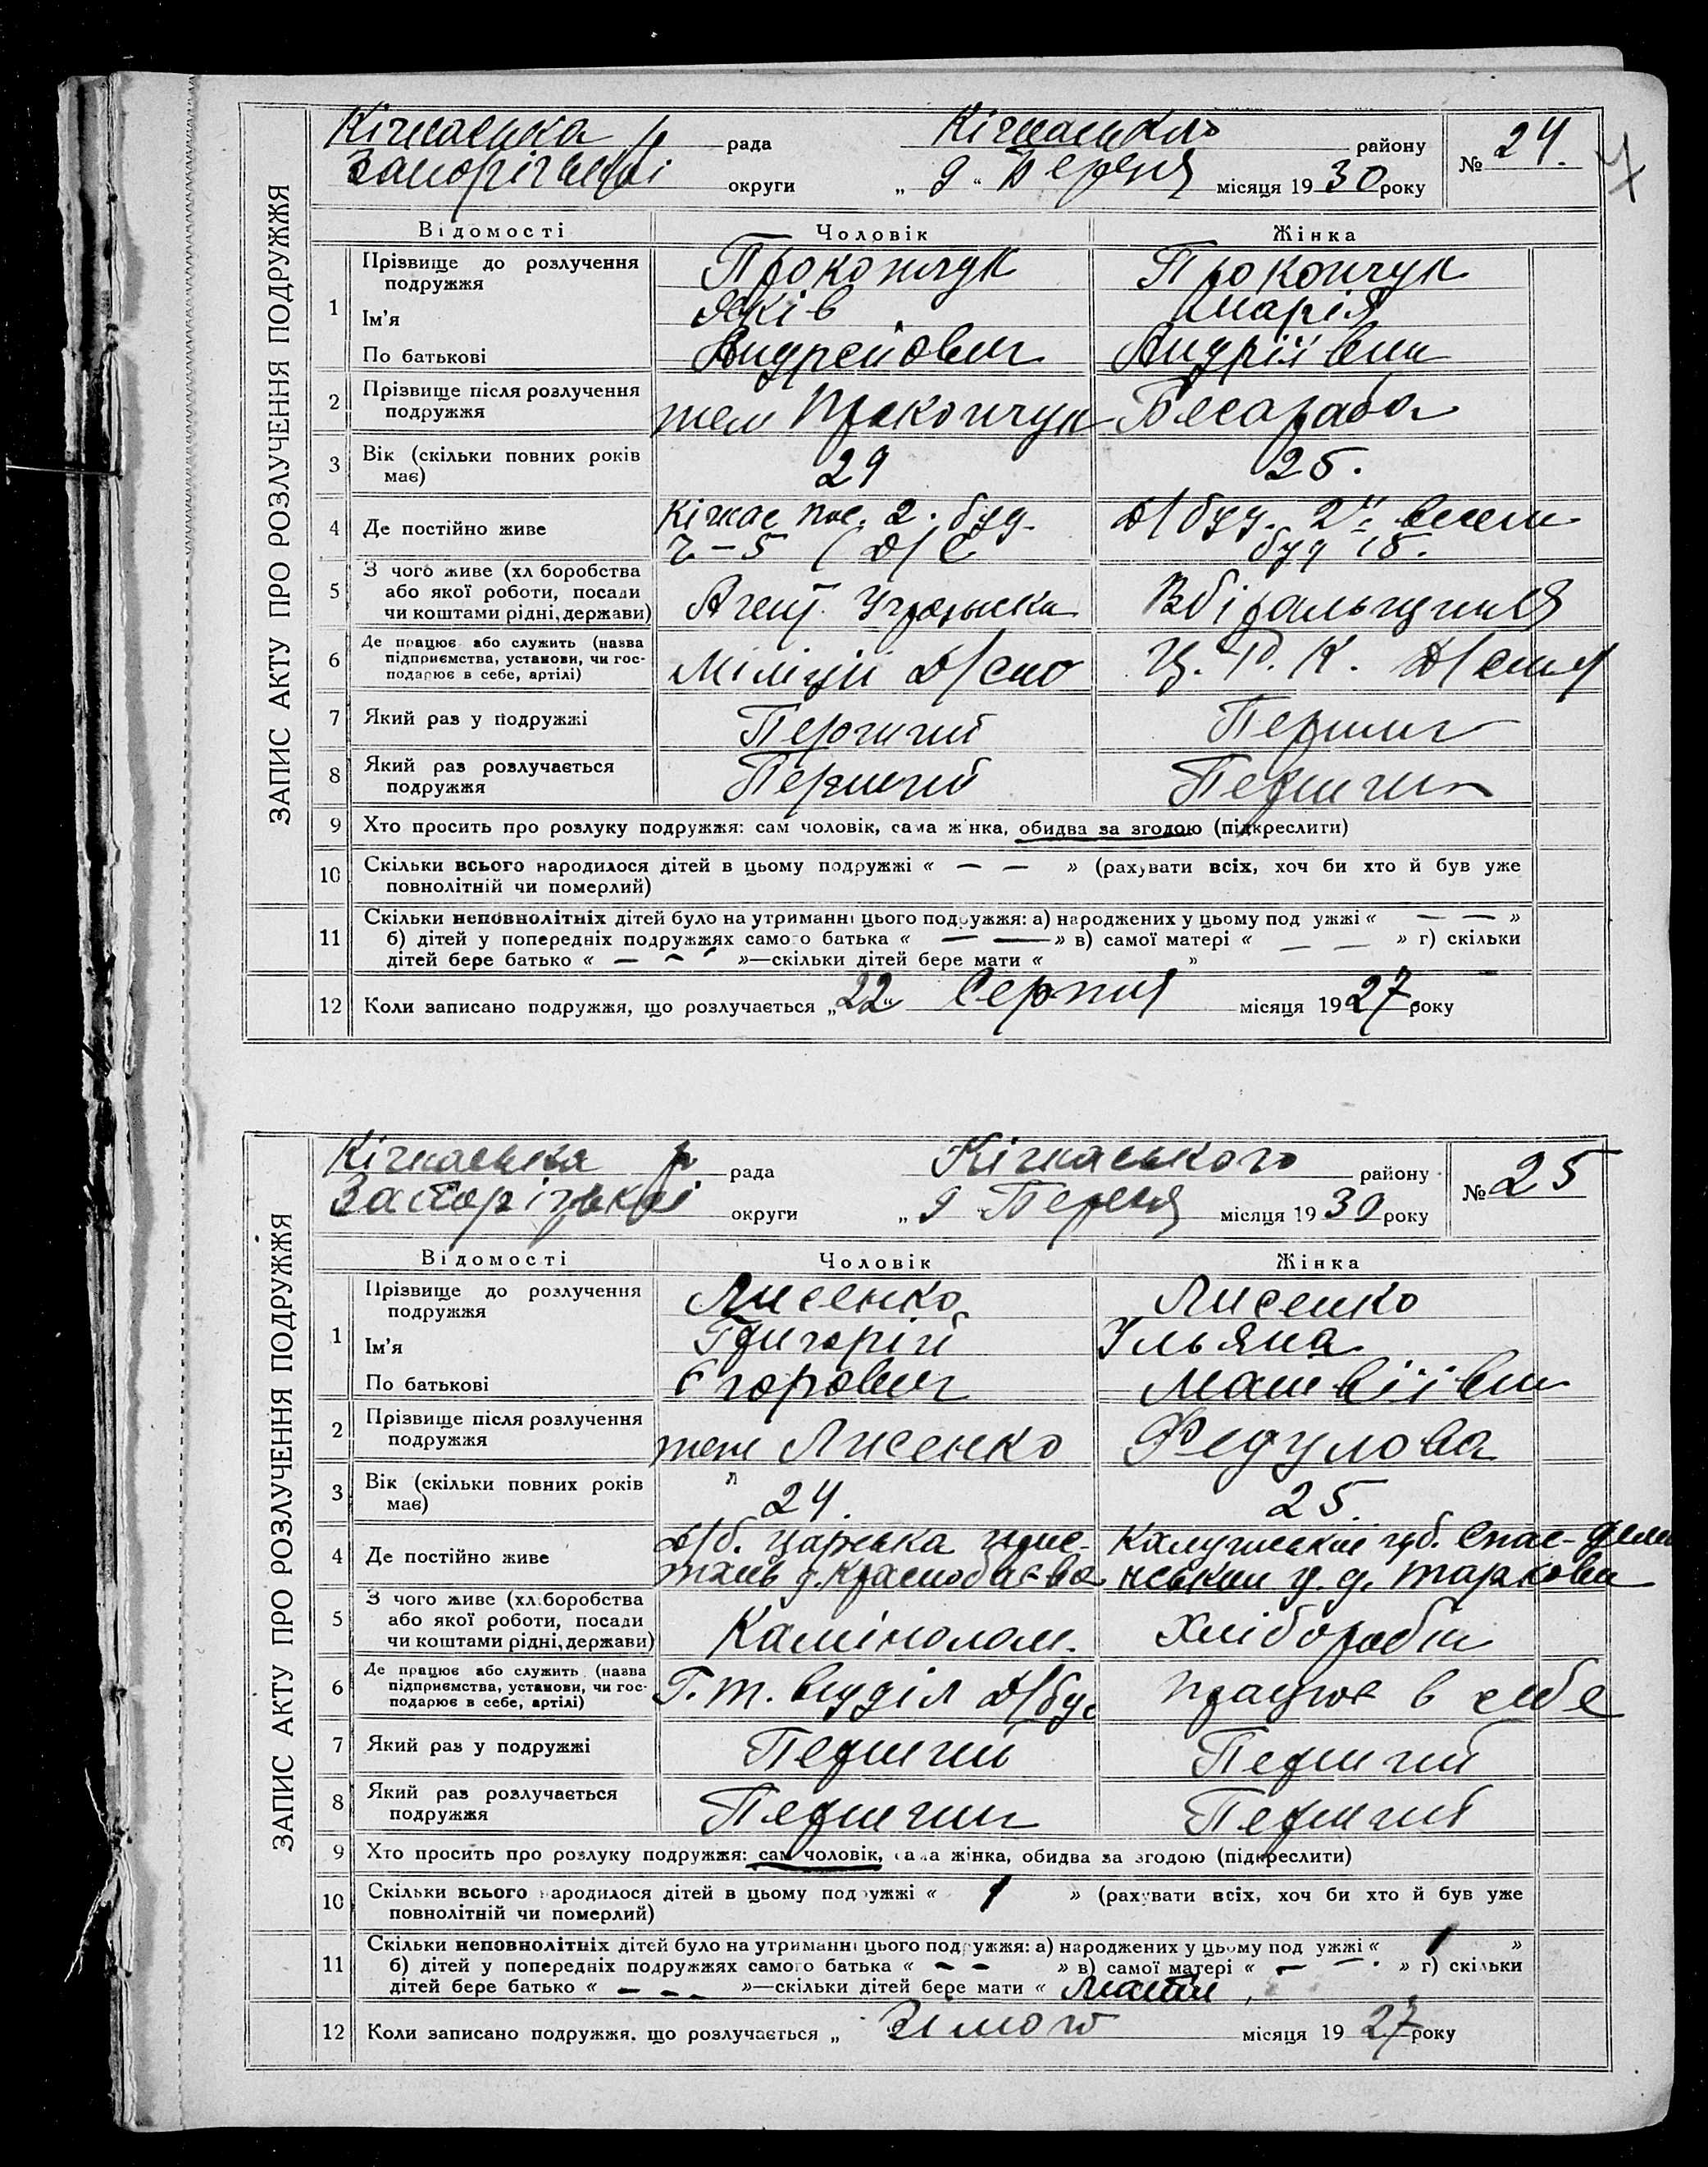 ЗАПИС АКТУ ПРО РОЗЛУЧЕННЯ ПОДРУЖЖЯ
Кічкаська р рада Кічкаського району № 24.
округи „ 9 “ Березня місяця 1930 року
Відомості Чоловік Жінка
1 Прізвище до розлучення подружжя Прокопчук Прокопчук
Ім'я Яків Марія
По батькові Андрейович Андріївна
2 Прізвище після розлучення подружжя теж Прокопчук Бесараба
3 Вік (скільки повних років має) 29 25.
4 Де постійно живе Кічкас пос. 2. буд.
буд 15.
5 З чого живе (хліборобства
або якої роботи, посади
чи коштами рідні, держави) Агент
6 Де працює або служить (назва
підприємства, установи, чи гос-
подарює в себе, артілі) Міліції Ц. Р. К.
7 Який раз у подружжі Перший Перший
8 Який раз розлучається подружжя Перший Перший
9 Хто просить про розлуку подружжя: сам чоловік, сама жінка, обидва за згодою (підкреслити)
10 Скільки всього народилося дітей в цьому подружжі « — — » (рахувати всіх, хоч би хто й був уже
повнолітній чи померлий)
11 Скільки неповнолітніх дітей було на утриманні цього подружжя: а) народжених у цьому подружжі « — — »
б) дітей у попередніх подружжях самого батька « — — » в) самої матері « — — » г) скільки
дітей бере батько « — — — »—скільки дітей бере мати « »
12 Коли записано подружжя, що розлучається „22“ Серпня місяця 1927 року
ЗАПИС АКТУ ПРО РОЗЛУЧЕННЯ ПОДРУЖЖЯ
Кічкаська р рада Кічкаського району № 25
Запорізької округи „ 9 Березня місяця 1930 року
Відомості Чоловік Жінка
1 Прізвище до розлучення подружжя Лисенко Лисенко
Ім'я Григорій Ульяна
По батькові Єгорович Матвіївна
2 Прізвище після розлучення подружжя теж Лисенко Федулова
3 Вік (скільки повних років має) 24. 25.
4 Де постійно живе Д/б. Царська прис- Калужський губ. Спас-Деме
тань нський у. д.
5 З чого живе (хліборобства
або якої роботи, посади
чи коштами рідні, держави) Камінолом. Хліборобка
6 Де працює або служить (назва
підприємства, установи, чи гос-
подарює в себе, артілі) Г. т. відділ Д/буд працює в себе
7 Який раз у подружжі Перший Перший
8 Який раз розлучається подружжя Перший Перший
9 Хто просить про розлуку подружжя: сам чоловік, сама жінка, обидва за згодою (підкреслити)
10 Скільки всього народилося дітей в цьому подружжі « 1 » (рахувати всіх, хоч би хто й був уже
повнолітній чи померлий)
11 Скільки неповнолітніх дітей було на утриманні цього подружжя: а) народжених у цьому подружжі « 1 »
б) дітей у попередніх подружжях самого батька « — — » в) самої матері « — — » г) скільки
дітей бере батько « — — — »—скільки дітей бере мати «
12 Коли записано подружжя, що розлучається „ Зімою місяця 1927 року